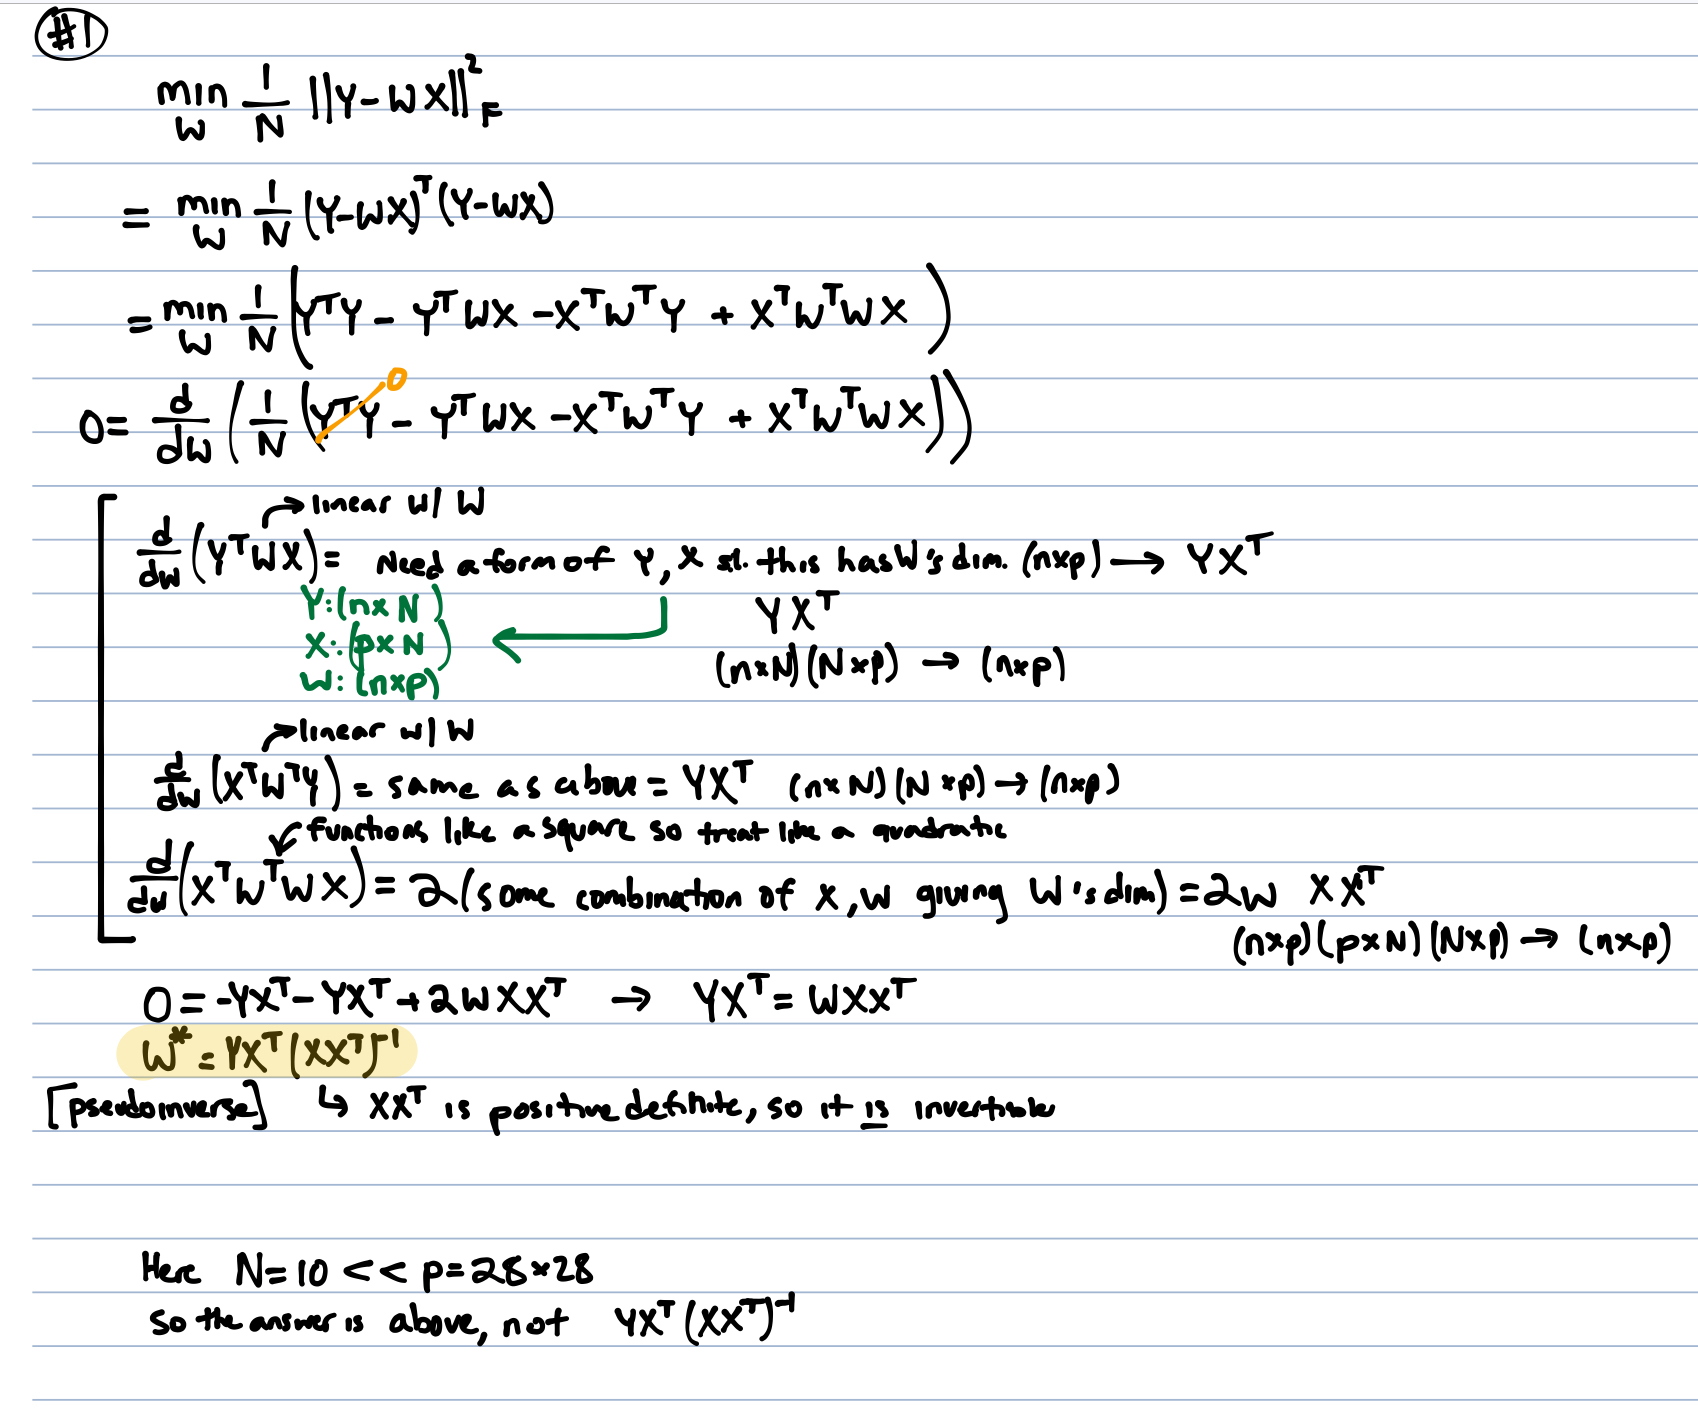 #1
min_W 1/N ||Y-WX||²_F
= min_W 1/N (Y-WX)ᵀ(Y-WX)
= min_W 1/N (YᵀY - YᵀWX - XᵀWᵀY + XᵀWᵀWX)
0 = d/dW (1/N (YᵀY - YᵀWX - XᵀWᵀY + XᵀWᵀWX)) 0
→ linear w/ W
d/dW (YᵀWX) = Need a form of Y, X st. this has W's dim. (n×p) → YXᵀ
Y: (n×N) YXᵀ
X: (p×N) (n×N)(N×p) → (n×p)
W: (n×p)
→ linear w/ W
d/dW (XᵀWᵀY) = same as above = YXᵀ (n×N)(N×p) → (n×p)
functions like a square so treat like a quadratic
d/dW (XᵀWᵀWX) = 2(some combination of X, W giving W's dim) = 2W XXᵀ
(n×p)(p×N)(N×p) → (n×p)
0 = -YXᵀ - YXᵀ + 2WXXᵀ → YXᵀ = WXXᵀ
W* = YXᵀ(XXᵀ)⁻¹
[pseudoinverse] ↳ XXᵀ is positive definite, so it is invertible
Here N=10 << p=28×28
so the answer is above, not YXᵀ(XXᵀ)⁻¹